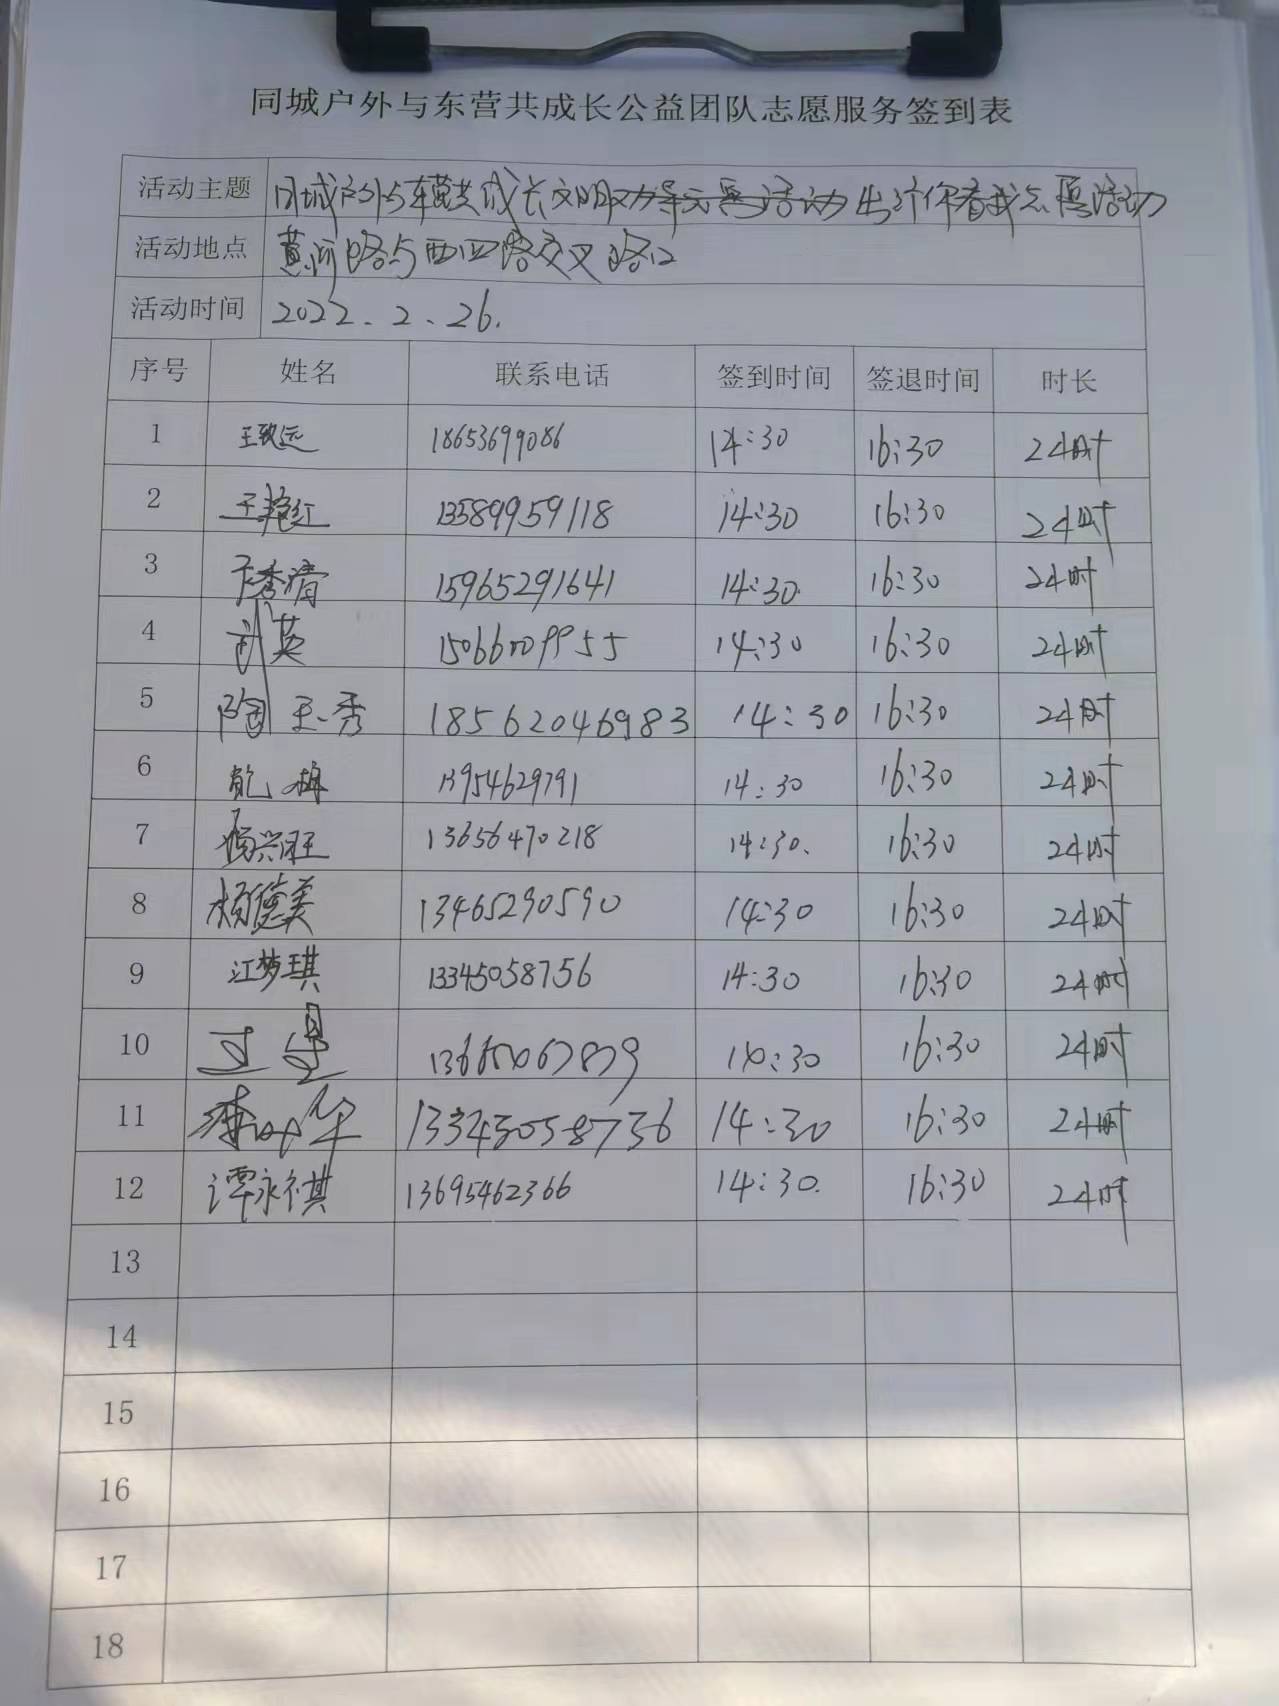 同城户外与东营共成长公益团队志愿服务签到表
活动主题 同城户外与东营共成长文明 活动 出行你看我志愿活动
活动地点 黄河路与西四路交叉路口
活动时间 2022.2.26.
序号 姓名 联系电话 签到时间 签退时间 时长
1 王致远 18653699086 14:30 16:30 2小时
2 王艳红 13589959118 14:30 16:30 2小时
3 秀清 15965291641 14:30 16:30 2小时
4 刘英 14:30 16:30 2小时
5 陶玉秀 18562046983 14:30 16:30 2小时
6 梅 13954629791 14:30 16:30 2小时
7 杨兴旺 13656470218 14:30. 16:30 2小时
8 杨德美 13465290590 14:30 16:30 2小时
9 江梦琪 13345058756 14:30 16:30 2小时
10 王 14:30 16:30 2小时
11 华 14:30 16:30 2小时
12 谭永祺 13695462366 14:30. 16:30 2小时
13
14
15
16
17
18